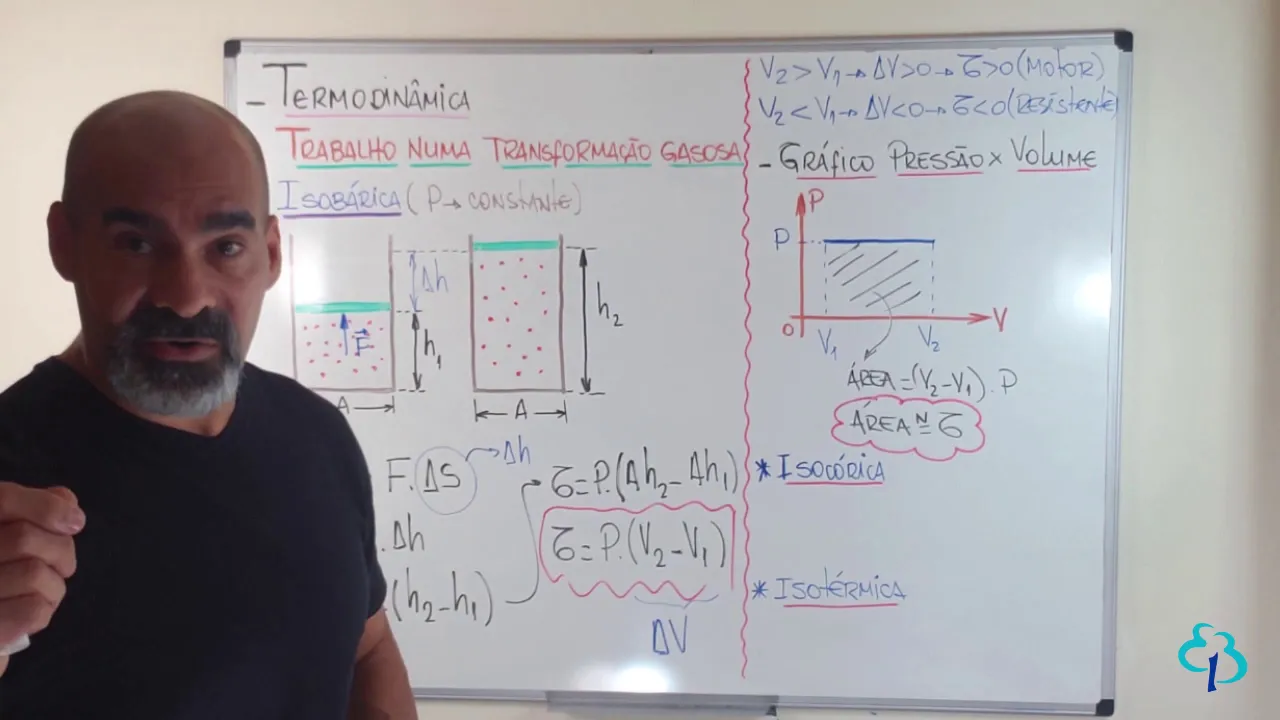 - TERMODINÂMICA
TRABALHO NUMA TRANSFORMAÇÃO GASOSA
ISOBÁRICA (P→CONSTANTE)
Δh
h₁
F⃗
A
h₂
A
F.ΔS →Δh
.Δh
(h₂-h₁)
Ϭ=P.(Ah₂-Ah₁)
Ϭ=P.(V₂-V₁)
ΔV
V₂>V₁→ΔV>0→Ϭ>0(MOTOR)
V₂<V₁→ΔV<0→Ϭ<0(RESISTENTE)
- GRÁFICO PRESSÃO x VOLUME
P
P
0
V₁
V₂
V
ÁREA=(V₂-V₁).P
ÁREA N= Ϭ
* ISOCÓRICA
* ISOTÉRMICA